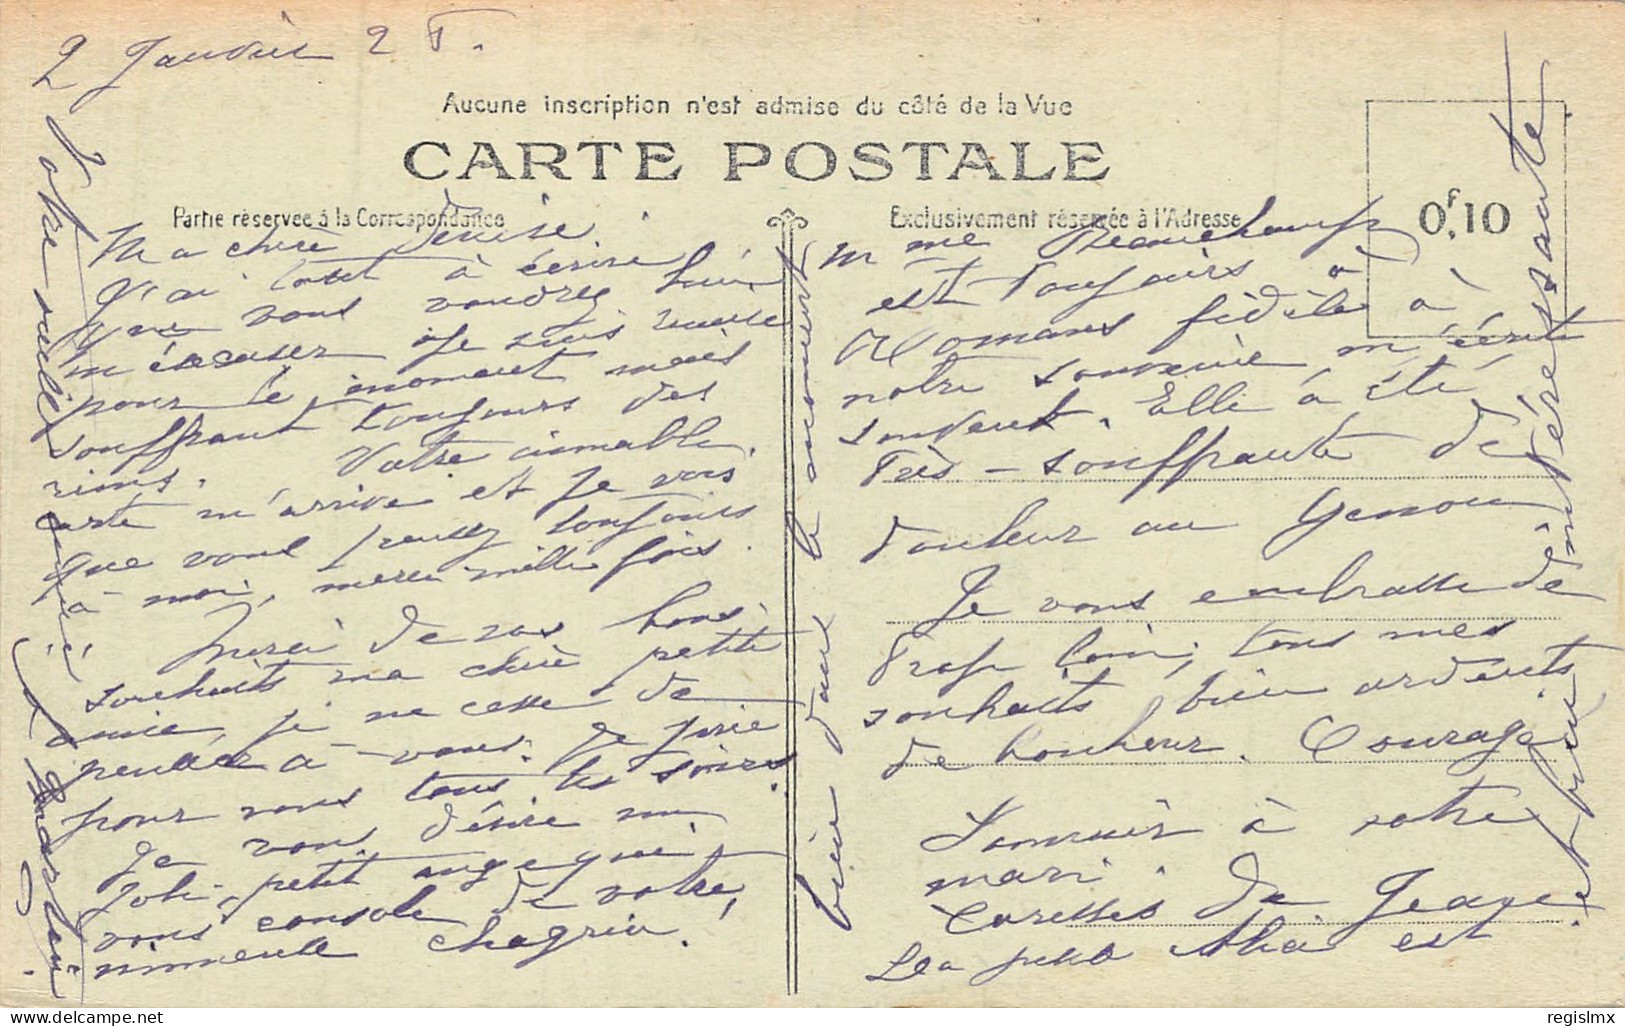 2 Janvier 25.
Aucune inscription n'est admise du côté de la Vue
CARTE POSTALE
Partie réservée à la Correspondance
Exclusivement réservée à l'Adresse
0F,10
Ma chère Denise.
J'ai tant à écrire
que vous voudrez bien
m'excuser je suis
pour le moment mais
souffrant toujours des
reins. Votre aimable
carte m'arrive et je vois
que vous pensez toujours
à moi, merci mille fois.
Merci de vos bons
souhaits ma chère petite
amie, je ne cesse de
penser à vous. Je prie
pour vous tous les soirs.
Je vous désire un
joli petit ange qui
vous console de votre
immense chagrin!
Mme Beauchamp
est toujours à
Romans fidèle à
notre souvenir m'écrit
souvent. Elle a été
très-souffrante de
douleur au genou
Je vous embrasse de
trop loin, tous mes
souhaits bien ardents
de bonheur. Courage
Souvenir à votre
mari.
Caresses de
La petite est
bien dans le moment
et bien intéressante
Votre vieille